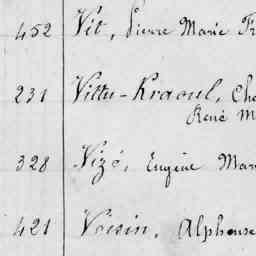 452 Vit, Pierre Marie Fr
231 Vittu-Kraoul, Cha
René M
328 Vizé, Eugène Mar
421 Voisin, Alphonse